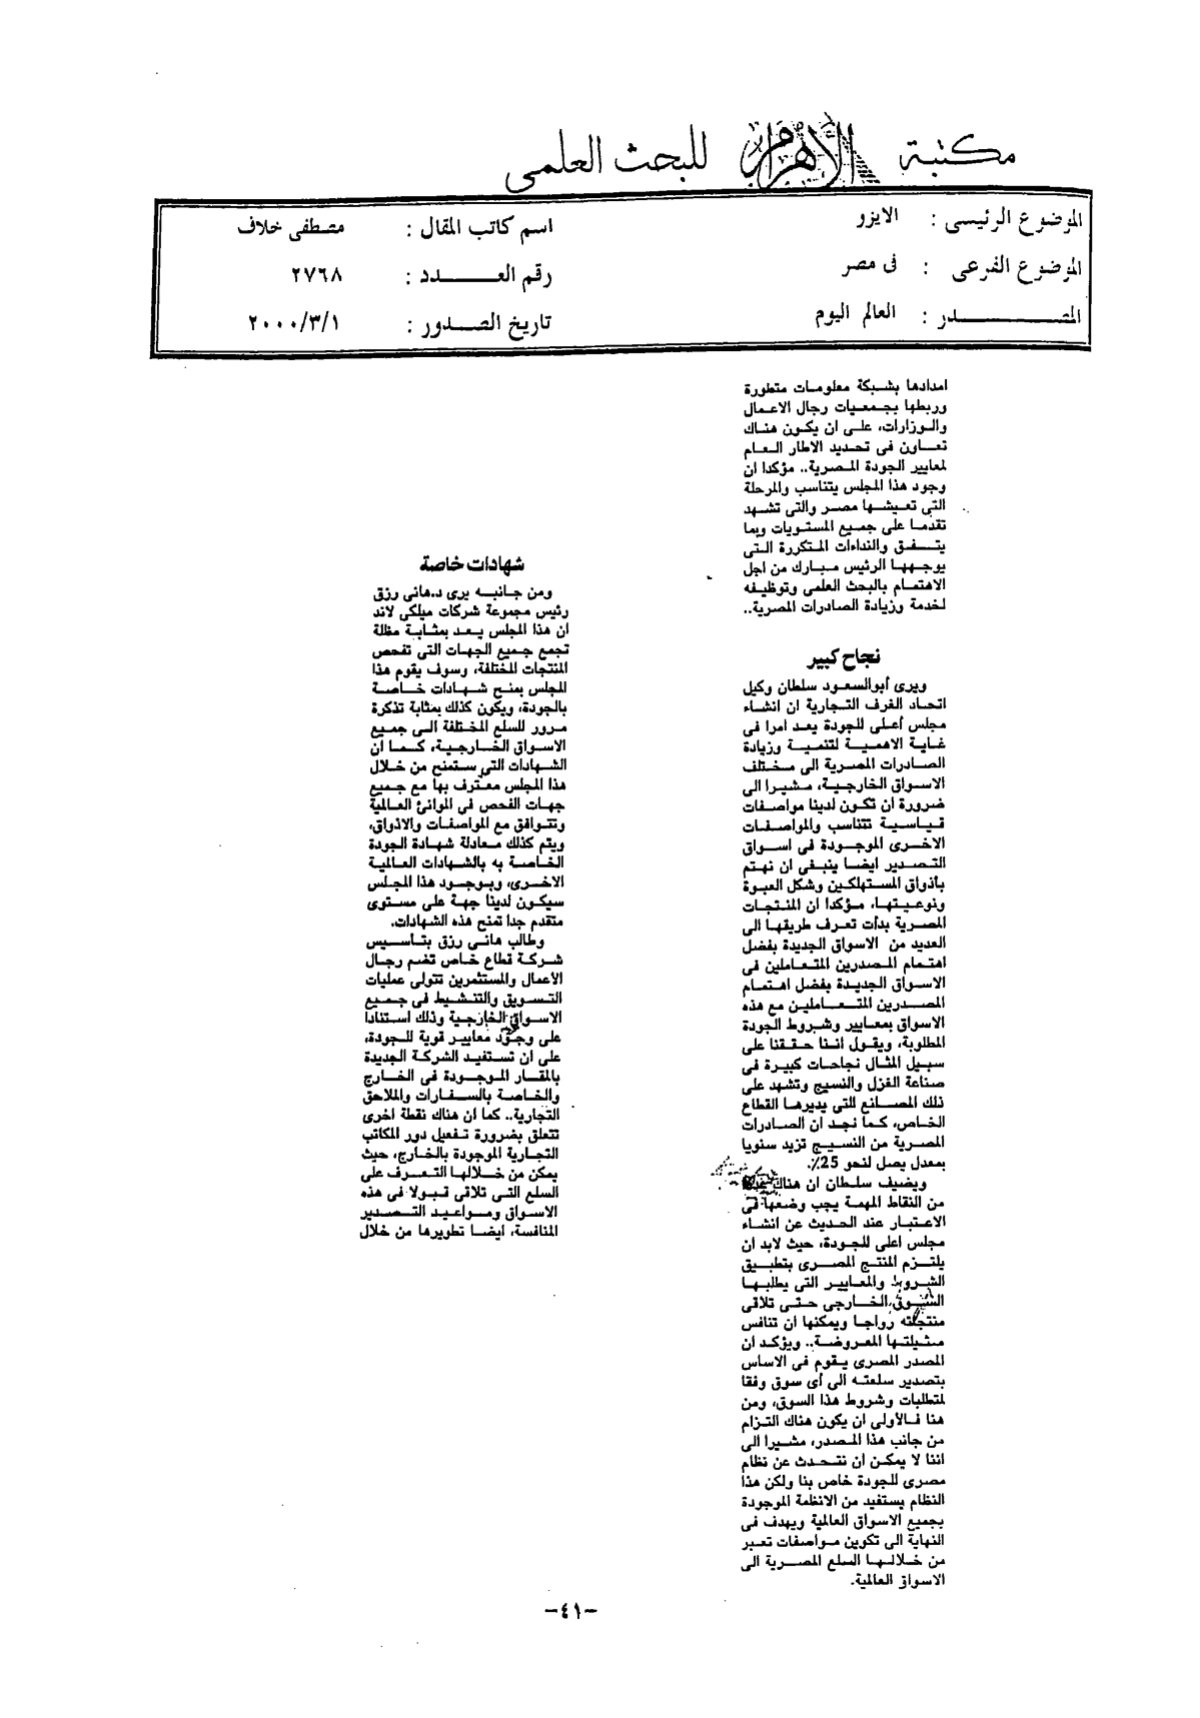 مكتبة الأهرام للبحث العلمى
الموضوع الرئيسى : الايزو
اسم كاتب المقال : مصطفى خلاف
الموضوع الفرعى : فى مصر
رقم العـــدد : ٢٧٦٨
المصــدر : العالم اليوم
تاريخ الصدور : ٢٠٠٠/٣/١
امدادها بشبكة معلومات متطورة
وربطها بجمعيات رجال الاعمال
والوزارات، على ان يكون هناك
تعاون فى تحديد الاطار العام
لمعايير الجودة المصرية.. مؤكدا ان
وجود هذا المجلس يتناسب والمرحلة
التى تعيشها مصر والتى تشهد
تقدما على جميع المستويات وبما
يتفق والنداءات المتكررة التى
يوجهها الرئيس مبارك من اجل
الاهتمام بالبحث العلمى وتوظيفه
لخدمة وزيادة الصادرات المصرية..
نجاح كبير
ويرى أبوالسعود سلطان وكيل
اتحاد الغرف التجارية ان انشاء
مجلس أعلى للجودة يعد امرا فى
غاية الاهمية لتنمية وزيادة
الصادرات المصرية الى مختلف
الاسواق الخارجية، مشيرا الى
ضرورة ان تكون لدينا مواصفات
قياسية تتناسب والمواصفات
الاخرى الموجودة فى اسواق
التصدير ايضا ينبغى ان نهتم
بأذواق المستهلكين وشكل العبوة
ونوعيتها، مؤكدا ان المنتجات
المصرية بدأت تعرف طريقها الى
العديد من الاسواق الجديدة بفضل
اهتمام المصدرين المتعاملين فى
الاسواق الجديدة بفضل اهتمام
المصدرين المتعاملين مع هذه
الاسواق بمعايير وشروط الجودة
المطلوبة، ويقول اننا حققنا على
سبيل المثال نجاحات كبيرة فى
صناعة الغزل والنسيج وتشهد على
ذلك المصانع التى يديرها القطاع
الخاص، كما نجد ان الصادرات
المصرية من النسيج تزيد سنويا
بمعدل يصل لنحو 25٪.
ويضيف سلطان ان هناك
من النقاط المهمة يجب وضعها فى
الاعتبار عند الحديث عن انشاء
مجلس اعلى للجودة، حيث لابد ان
يلتزم المنتج المصرى بتطبيق
الشروط والمعايير التى يطلبها
السوق الخارجى حتى تلاقى
منتجاته رواجا ويمكنها ان تنافس
مثيلتها المعروضة.. ويؤكد ان
المصدر المصرى يقوم فى الاساس
بتصدير سلعته الى أى سوق وفقا
لمتطلبات وشروط هذا السوق، ومن
هنا فالأولى ان يكون هناك التزام
من جانب هذا المصدر، مشيرا الى
اننا لا يمكن ان نتحدث عن نظام
مصرى للجودة خاص بنا ولكن هذا
النظام يستفيد من الانظمة الموجودة
بجميع الاسواق العالمية ويهدف فى
النهاية الى تكوين مواصفات تعبر
من خلالها السلع المصرية الى
الاسواق العالمية.
شهادات خاصة
ومن جانبه يرى د.هانى رزق
رئيس مجموعة شركات ميلكى لاند
ان هذا المجلس يعد بمثابة مظلة
تجمع جميع الجهات التى تفحص
المنتجات المختلفة، وسوف يقوم هذا
المجلس بمنح شهادات خاصة
بالجودة، ويكون كذلك بمثابة تذكرة
مرور للسلع المختلفة الى جميع
الاسواق الخارجية، كما ان
الشهادات التى ستمنح من خلال
هذا المجلس معترف بها مع جميع
جهات الفحص فى الموانئ العالمية
وتتوافق مع المواصفات والاذواق،
ويتم كذلك معادلة شهادة الجودة
الخاصة به بالشهادات العالمية
الاخرى، وبوجود هذا المجلس
سيكون لدينا جهة على مستوى
متقدم جدا تمنح هذه الشهادات.
وطالب هانى رزق بتاسيس
شركة قطاع خاص تضم رجال
الاعمال والمستثمرين تتولى عمليات
التسويق والتنشيط فى جميع
الاسواق الخارجية وذلك استنادا
على وجود معايير قوية للجودة،
على ان تستفيد الشركة الجديدة
بالمقار الموجودة فى الخارج
والخاصة بالسفارات والملاحق
التجارية.. كما ان هناك نقطة اخرى
تتعلق بضرورة تفعيل دور المكاتب
التجارية الموجودة بالخارج، حيث
يمكن من خلالها التعرف على
السلع التى تلاقى قبولا فى هذه
الاسواق ومواعيد التصدير
المنافسة، ايضا تطويرها من خلال
-٤١-